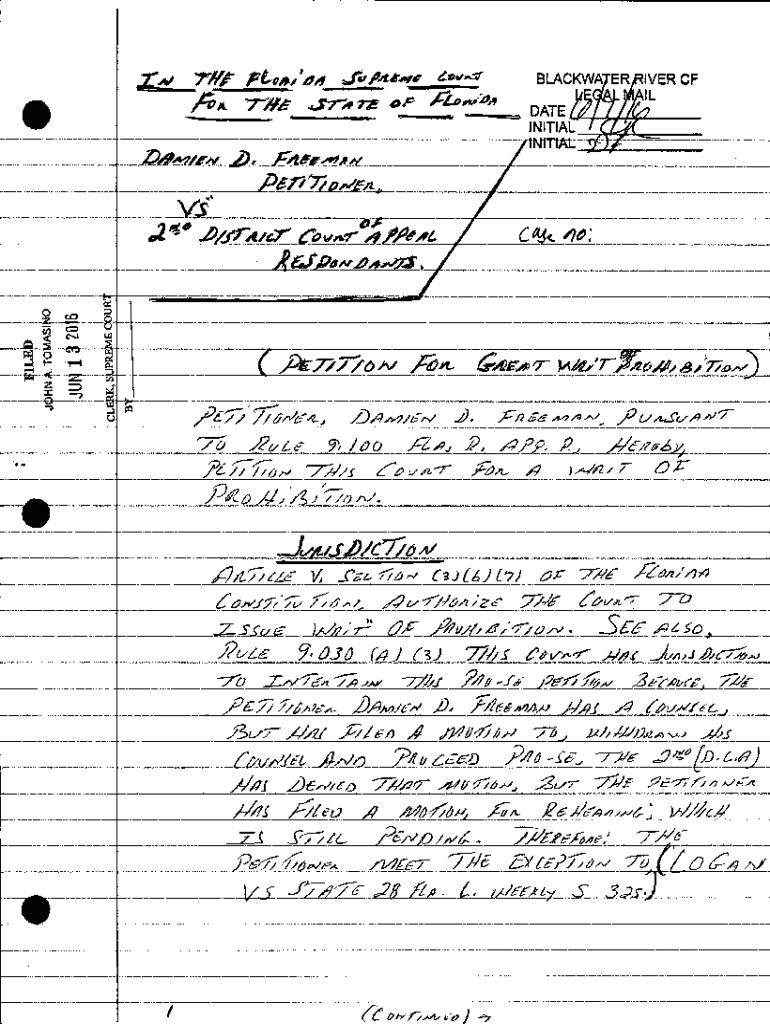 IN THE FLORIDA SUPREME COURT
FOR THE STATE OF FLORIDA
BLACKWATER RIVER CF
LEGAL MAIL
DATE
INITIAL
INITIAL
DAMIEN D. FREEMAN
PETITIONER,
VS"
2ND DISTRICT COURT OF APPEAL
RESPONDANTS.
Case no:
FILED
JOHN A. TOMASINO
JUN 13 2016
CLERK, SUPREME COURT
BY
(PETITION FOR GREAT WRIT OF PROHIBITION)
PETITIONER, DAMIEN D. FREEMAN, PURSUANT
TO RULE 9.100 FLA, R. APP. P., HEREBY,
PETITION THIS COURT FOR A WRIT OF
PROHIBITION.
JURISDICTION
ARTICLE V. SECTION (3)(b)(7) OF THE FLORIDA
CONSTITUTION, AUTHORIZE THE COURT TO
ISSUE WRIT" OF PROHIBITION. SEE ALSO,
RULE 9.030 (A)(3) THIS COURT HAS JURISDICTION
TO INTERTAIN THIS PRO-SE PETITION BECAUSE, THE
PETITIONER DAMIEN D. FREEMAN HAS A COUNSEL,
BUT HAS FILED A MOTION TO, WITHDRAW HIS
COUNSEL AND PROCEED PRO-SE, THE 2ND (D.C.A)
HAS DENIED THAT MOTION, BUT THE PETITIONER
HAS FILED A MOTION, FOR REHEARING; WHICH
IS STILL PENDING. THEREFORE: THE
PETITIONER MEET THE EXCEPTION TO, (LOGAN
VS STATE 28 FLA. L. WEEKLY S 325.)
1
(CONTINUED) →